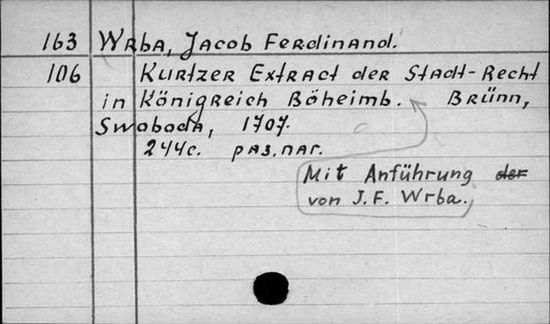 163 Wrba, Jacob Ferdinand.
106 Kurtzer Extract der Stadt-Recht
in Königreich Böheimb. Brünn,
Swoboda, 1707.
244c. pag.nar.
Mit Anführung der
von J. F. Wrba.